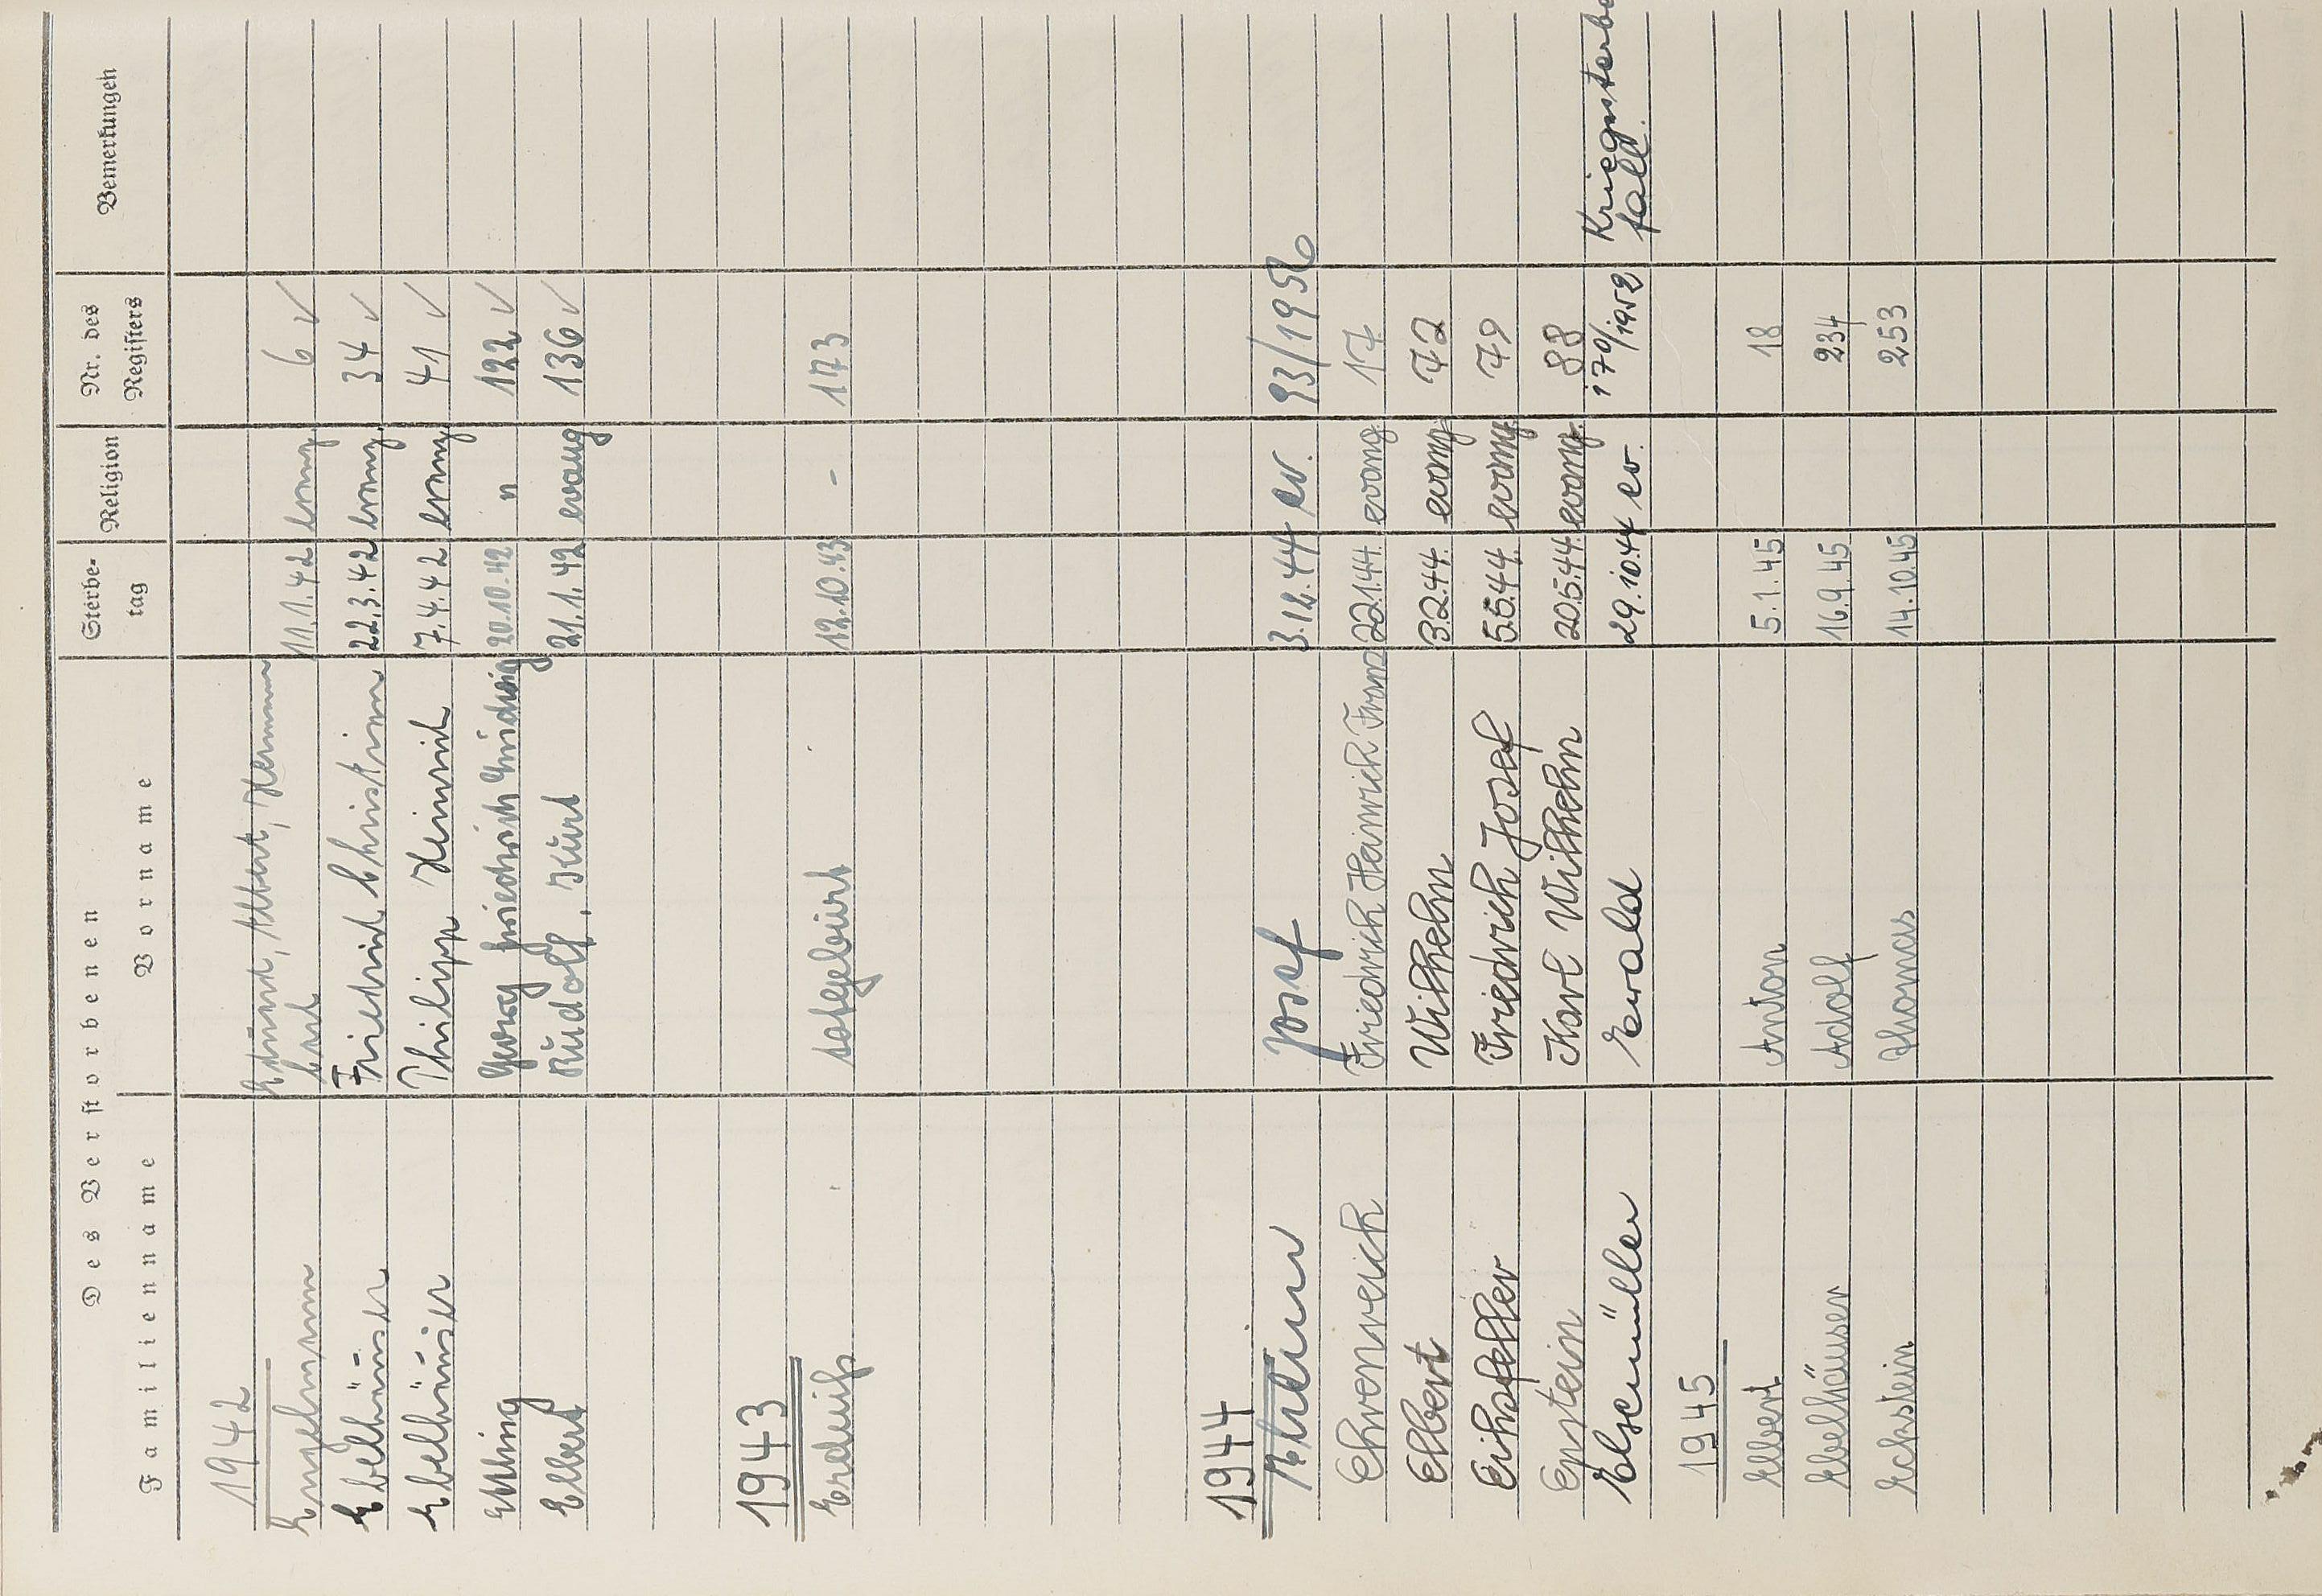 Des Verstorbenen Sterbe- Religion Nr. des Bemerkungen
Familienname Vorname tag Registers
1942
Edmund, Albert, Hermann
Engelmann Carl 11.1.42 evang. 6 ✓
Ebelhäuser Friedrich Christian 22.3.42 evang. 34 ✓
Ebelhäuser Philipp Heinrich 7.4.42 evang. 41 ✓
Georg Friedrich Ludwig 20.10.42 " 122 ✓
Elbert Rudolf, Kurt 21.1.42 evang 136 ✓
1943
totgeburt 12.10.43 - 173
1944
Josef 3.12.44 ev. 93/1956
Ehrenreich Friedrich Heinrich Franz 22.1.44. evang. 17
Elbert Wilhelm 3.2.44. evang. 72
Friedrich Josef 5.5.44. evang. 79
Epstein Karl Wilhelm 20.5.44. evang. 88
Elsemüller Ewald 29.10.44 ev. 170/1952 Kriegssterbe
fall.
1945
Elbert Anton 5.1.45 18
Ebelhäuser Adolf 16.9.45 234
Eckstein Thomas 14.10.45 253